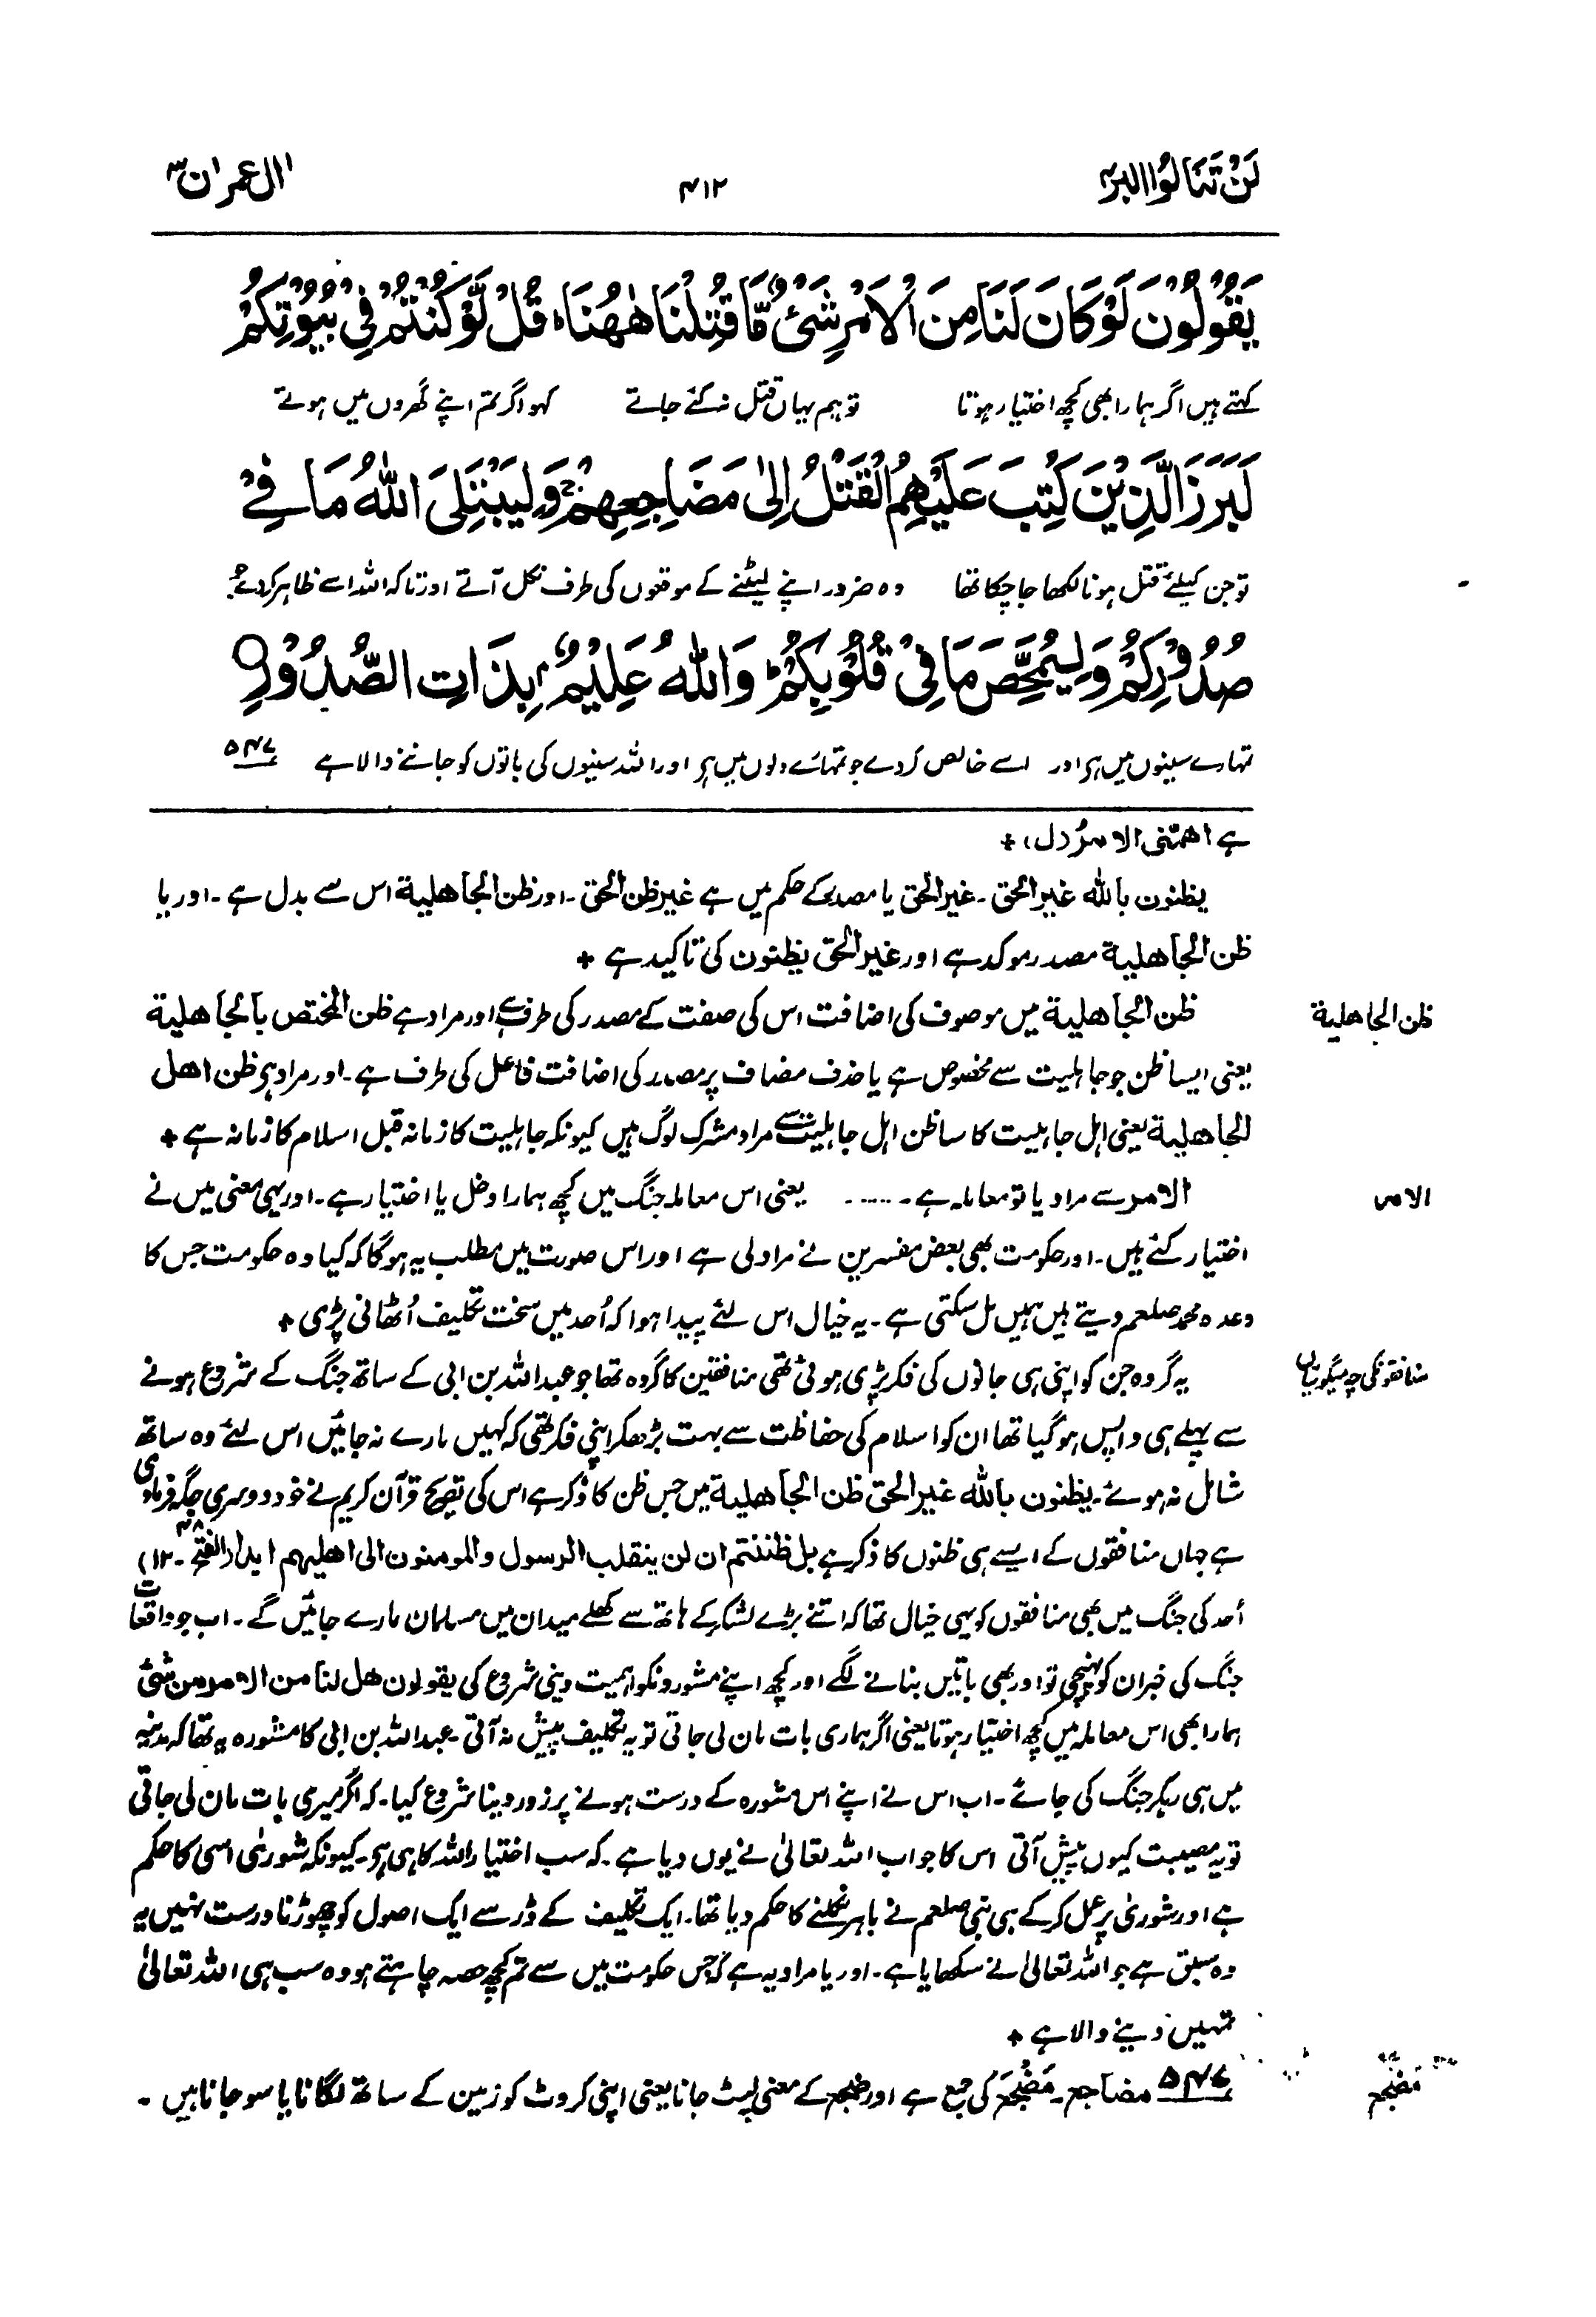 لَنْ تَنَالُوا الْبِرَّ ۴
۴۱۲
اٰل عمرٰن ۳
يَقُوْلُوْنَ لَوْ كَانَ لَنَا مِنَ الْاَمْرِ شَيْءٌ مَّا قُتِلْنَا هٰهُنَا ؕ قُلْ لَّوْ كُنْتُمْ فِيْ بُيُوْتِكُمْ
کہتے ہیں اگر ہمارا بھی کچھ اختیار ہوتا تو ہم یہاں قتل نہ کئے جاتے کہو اگر تم اپنے گھروں میں ہوتے
لَبَرَزَ الَّذِيْنَ كُتِبَ عَلَيْهِمُ الْقَتْلُ اِلٰى مَضَاجِعِهِمْ ۚ وَلِيَبْتَلِيَ اللّٰهُ مَا فِيْ
تو جن کیلئے قتل ہونا لکھا جا چکا تھا وہ ضرور اپنے لیٹنے کے موقعوں کی طرف نکل آتے اور تاکہ اللہ اسے ظاہر کردے جو
صُدُوْرِكُمْ وَلِيُمَحِّصَ مَا فِيْ قُلُوْبِكُمْ ؕ وَاللّٰهُ عَلِيْمٌۢ بِذَاتِ الصُّدُوْرِ ۝
تمہارے سینوں میں ہر اور اسے خالص کردے جو تمہارے دلوں میں ہر اور اللہ سینوں کی باتوں کو جاننے والا ہے ۵۴۷
ہے اھمتنی الامر (دل) +
یظنون باللہ غیر الحق ۔ غیر الحق یا مصدر کے حکم میں ہے غیر ظن الحق ۔ اور ظن الجاھلیة اس سے بدل ہے ۔ اور یا
ظن الجاھلیة مصدر موکد ہے اور غیر الحق یظنون کی تاکید ہے +
ظن الجاھلیة
ظن الجاھلیة میں موصوف کی اضافت اس کی صفت کے مصدر کی طرف ہے اور مراد ہے ظن المختص بالجاھلیة
یعنی ایسا ظن جو جاہلیت سے مخصوص ہے یا حذف مضاف پر مصدر کی اضافت فاعل کی طرف ہے ۔ اور مراد ہر ظن اھل
الجاھلیة یعنی اہل جاہلیت کا سا ظن اہل جاہلیت سے مراد مشرک لوگ ہیں کیونکہ جاہلیت کا زمانہ قبل اسلام کا زمانہ ہے +
الامر
الامر سے مراد یا تو معاملہ ہے ۔ ...... یعنی اس معاملہ جنگ میں کچھ ہمارا دخل یا اختیار ہے ۔ اور یہی معنی میں نے
اختیار کئے ہیں ۔ اور حکومت بھی بعض مفسرین نے مراد لی ہے اور اس صورت میں مطلب یہ ہوگا کہ کیا وہ حکومت جس کا
وعدہ محمد صلعم دیتے ہیں ہمیں مل سکتی ہے ۔ یہ خیال اس لئے پیدا ہوا کہ اُحد میں سخت تکلیف اُٹھانی پڑی +
منافقونکی چہ میگوئیاں
یہ گروہ جن کو اپنی ہی جانوں کی فکر پڑی ہوئی تھی منافقین کا گروہ تھا جو عبداللہ بن ابی کے ساتھ جنگ کے شروع ہونے
سے پہلے ہی واپس ہوگیا تھا ان کو اسلام کی حفاظت سے بہت بڑھکر اپنی فکر تھی کہ کہیں مارے نہ جائیں اس لئے وہ ساتھ
شامل نہ ہوئے ۔ یظنون باللہ غیر الحق ظن الجاھلیة میں جس ظن کا ذکر ہے اس کی تصریح قرآن کریم نے خود دوسری جگہ فرمادی
ہے جہاں منافقوں کے ایسے ہی ظنوں کا ذکر ہے بل ظننتم ان لن ینقلب الرسول والمومنون الی اھلیھم ابدا (الفتح ۴۸ ۔ ۱۲)
اُحد کی جنگ میں بھی منافقوں کو یہی خیال تھا کہ اتنے بڑے لشکر کے ہاتھ سے کھلے میدان میں مسلمان مارے جائیں گے ۔ اب جو واقعات
جنگ کی خبر ان کو پہنچی تو اور بھی باتیں بنانے لگے اور کچھ اپنے مشورونکو اہمیت دینی شروع کی یقولون ھل لنا من الامر من شئ
ہمارا بھی اس معاملہ میں کچھ اختیار ہوتا یعنی اگر ہماری بات مان لی جاتی تو یہ تکلیف پیش نہ آتی ۔ عبداللہ بن ابی کا مشورہ یہ تھا کہ مدینہ
میں ہی رہکر جنگ کی جائے ۔ اب اس نے اپنے اس مشورہ کے درست ہونے پر زور دینا شروع کیا ۔ کہ اگر میری بات مان لی جاتی
تو یہ مصیبت کیوں پیش آتی اس کا جواب اللہ تعالیٰ نے یوں دیا ہے ۔ کہ سب اختیار اللہ کا ہی ہو ۔ کیونکہ شوریٰ اسی کا حکم
ہے اور شوریٰ پر عمل کرکے ہی نبی صلعم نے باہر نکلنے کا حکم دیا تھا ۔ ایک تکلیف کے ڈر سے ایک اصول کو چھوڑنا درست نہیں یہ
وہ سبق ہے جو اللہ تعالیٰ نے سکھایا ہے ۔ اور یا مراد یہ ہے کہ جس حکومت میں سے تم کچھ حصہ چاہتے ہو وہ سب ہی اللہ تعالیٰ
تمہیں دینے والا ہے +
مضجع
۵۴۷ مضاجع ۔ مَضْجَع کی جمع ہے اور ضجع کے معنی لیٹ جانا یعنی اپنی کروٹ کو زمین کے ساتھ لگانا یا سو جانا ہیں ۔